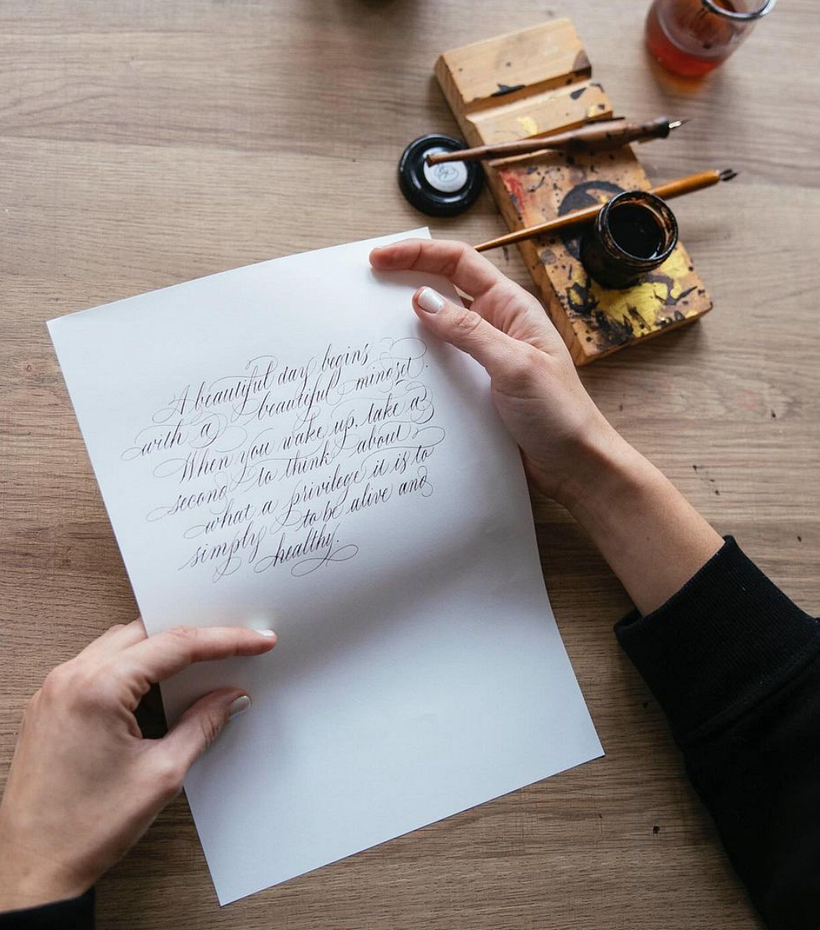 A beautiful day begins
with a beautiful mindset.
When you wake up, take a
second to think about
what a privilege it is to
simply to be alive and
healthy.